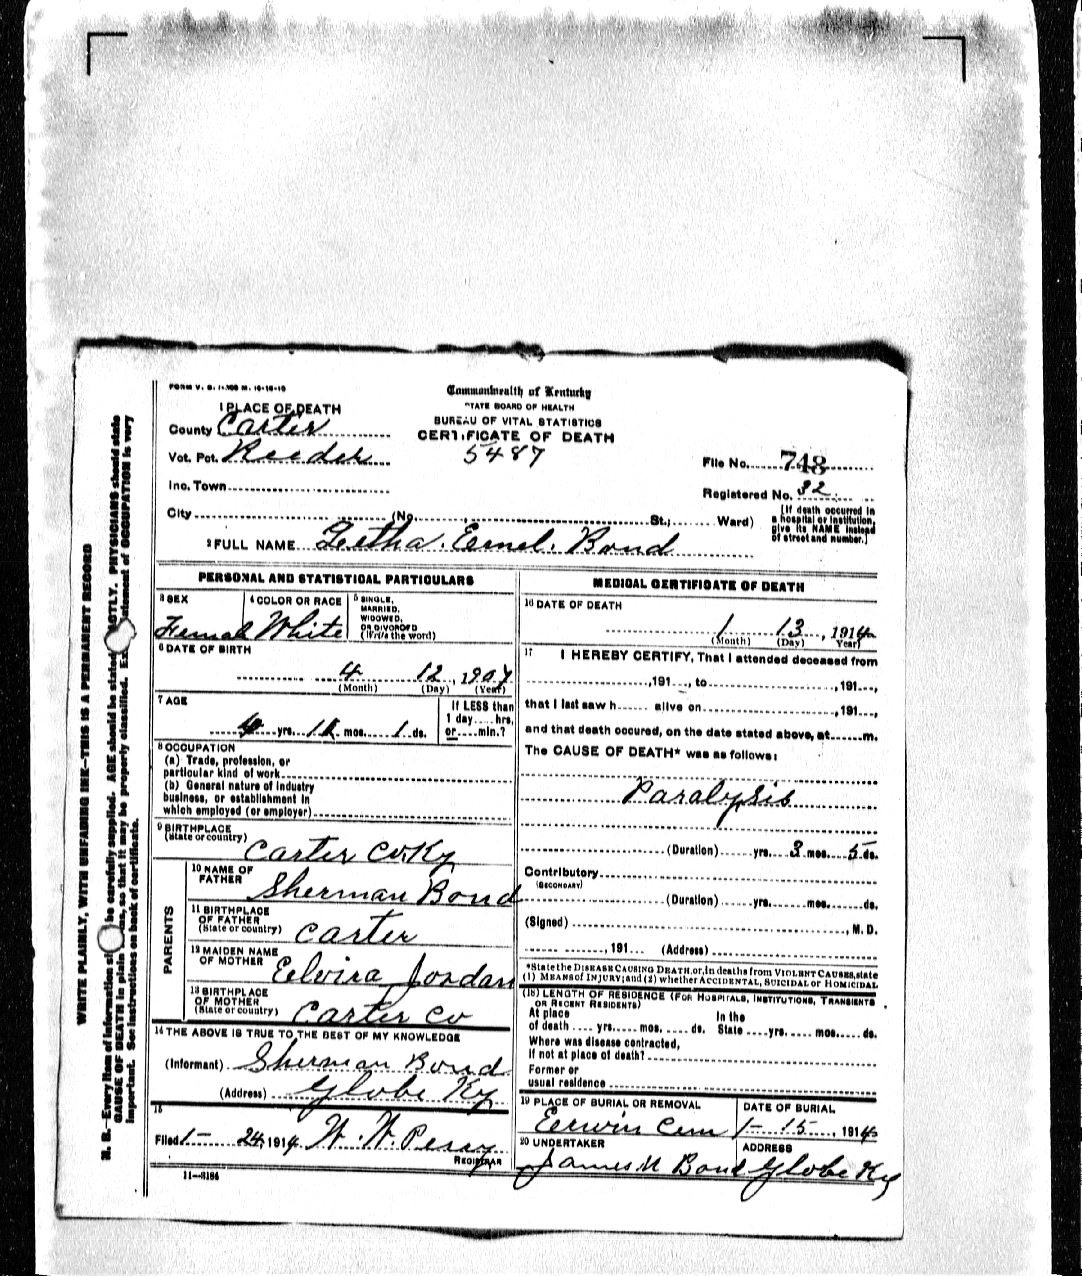 FORM V. S. 1-
Commonwealth of Kentucky
STATE BOARD OF HEALTH
BUREAU OF VITAL STATISTICS
CERTIFICATE OF DEATH
5487
1 PLACE OF DEATH
County Carter
Vot. Pct. Reeder
Inc. Town
City (No. St.; Ward)
File No. 748
Registered No. 32
[If death occurred in
a hospital or institution,
give its NAME instead
of street and number.]
2 FULL NAME Bond
PERSONAL AND STATISTICAL PARTICULARS
3 SEX
Femal
4 COLOR OR RACE
White
5 SINGLE,
MARRIED,
WIDOWED,
OR DIVORCED
(Write the word)
6 DATE OF BIRTH
4 12, 1907
(Month) (Day) (Year)
7 AGE
yrs. mos. 1 ds.
If LESS than
1 day hrs.
or min.?
8 OCCUPATION
(a) Trade, profession, or
particular kind of work
(b) General nature of industry
business, or establishment in
which employed (or employer)
9 BIRTHPLACE
(State or country) Carter Co. Ky
PARENTS
10 NAME OF
FATHER Sherman Bond
11 BIRTHPLACE
OF FATHER
(State or country) Carter
12 MAIDEN NAME
OF MOTHER Elvira Jordan
13 BIRTHPLACE
OF MOTHER
(State or country) Carter Co
14 THE ABOVE IS TRUE TO THE BEST OF MY KNOWLEDGE
(Informant) Sherman Bond
(Address) Globe Ky
15
Filed 1- 24, 1914 W. W. Perry
REGISTRAR
11-3184
MEDICAL CERTIFICATE OF DEATH
16 DATE OF DEATH
1 13, 1914
(Month) (Day) (Year)
17 I HEREBY CERTIFY, That I attended deceased from
, 191 , to , 191 ,
that I last saw h alive on , 191 ,
and that death occured, on the date stated above, at m.
The CAUSE OF DEATH* was as follows:
Paralysis
(Duration) yrs. 3 mos. 5 ds.
Contributory
(SECONDARY)
(Duration) yrs. mos. ds.
(Signed) , M.D.
, 191 (Address)
*State the DISEASE CAUSING DEATH, or, in deaths from VIOLENT CAUSES, state
(1) MEANS of INJURY; and (2) whether ACCIDENTAL, SUICIDAL or HOMICIDAL
(18) LENGTH OF RESIDENCE (FOR HOSPITALS, INSTITUTIONS, TRANSIENTS
OR RECENT RESIDENTS)
At place In the
of death yrs. mos. ds. State yrs. mos. ds.
Where was disease contracted,
if not at place of death?
Former or
usual residence
19 PLACE OF BURIAL OR REMOVAL
Eerwin Cem
DATE OF BURIAL
1- 15, 1914
20 UNDERTAKER
James M Bond
ADDRESS
Globe Ky
WRITE PLAINLY, WITH UNFADING INK—THIS IS A PERMANENT RECORD
N. B.—Every item of information should be carefully supplied. AGE should be stated EXACTLY. PHYSICIANS should state
CAUSE OF DEATH in plain terms, so that it may be properly classified. Exact statement of OCCUPATION is very
important. See instructions on back of certificate.